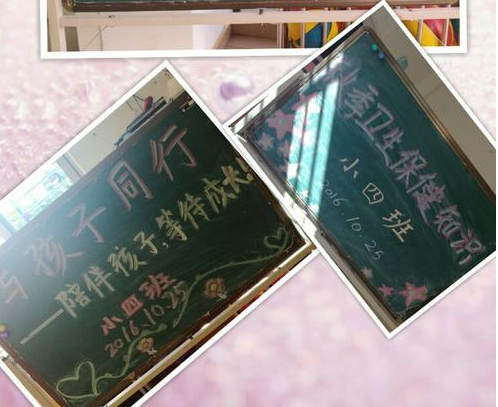 与孩子同行
——陪伴孩子,等待成长!
小四班
2016.10.25
季卫生保健知识
小四班
2016.10.25